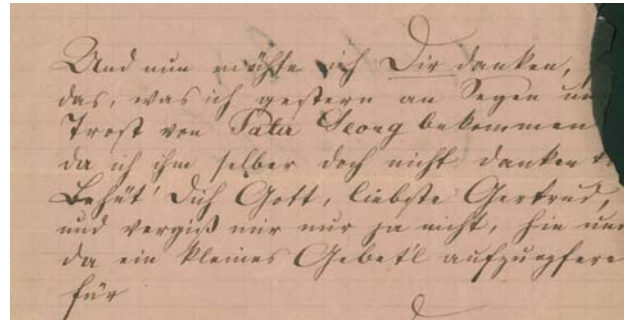 Und nun möchte ich Dir danken,
das, was ich gestern an Segen un
Trost von Pater Georg bekommen
da ich ihm selber doch nicht danken k
Behüt' Dich Gott, liebste Gertrud,
und vergiß mir nur ja nicht, hie und
da ein kleines Gebet'l aufzuopfern
für